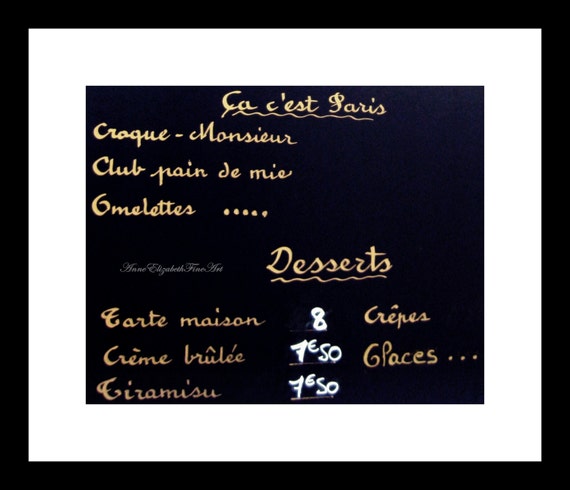 Ça c'est Paris
Croque-Monsieur
Club pain de mie
Omelettes .....
AnneElizabethFineArt
Desserts
Tarte maison 8 Crêpes
Crème brûlée 7€50 Glaces ...
Tiramisu 7€50